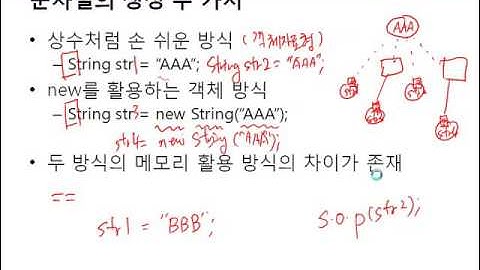 문자열의 생성 두 가지
• 상수처럼 손 쉬운 방식 (객체자료형)
– String str1 = "AAA"; String str2 = "AAA";
• new를 활용하는 객체 방식
– String str3 = new String("AAA");
str4 = new String("AAA");
• 두 방식의 메모리 활용 방식의 차이가 존재
==
str1 = "BBB";
S.O.p(str2);
AAA